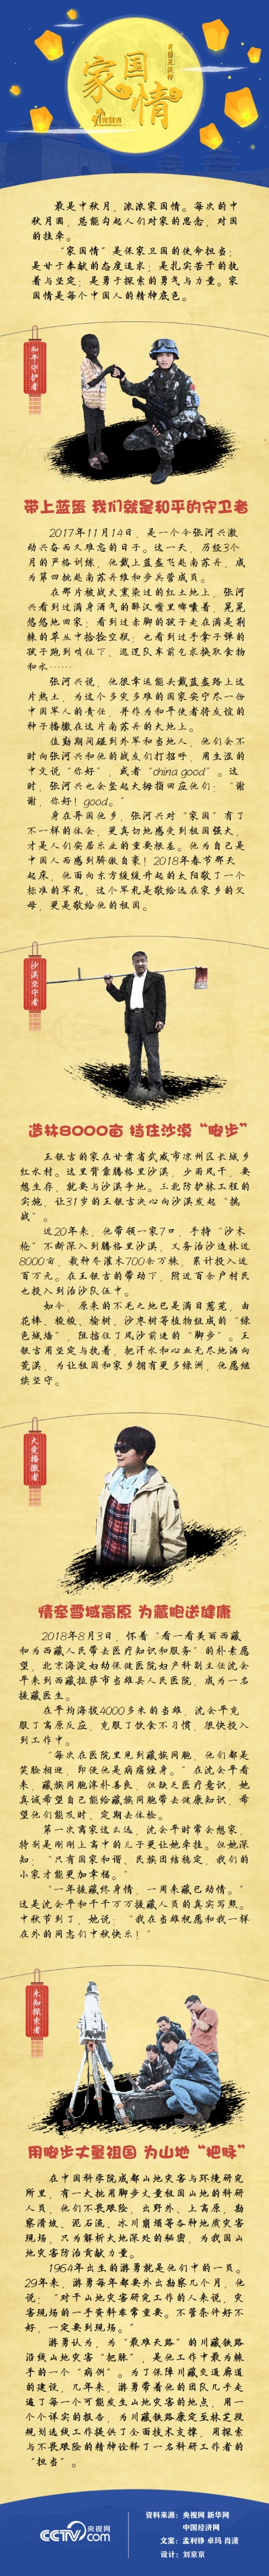 家国情
最是中秋月，浓浓家国情。每次的中
秋月圆，总能勾起人们对家的思念，对国
的挂牵。
“家国情”是保家卫国的使命担当；
是甘于奉献的态度追求；是扎实苦干的执
着与坚定；是勇于探索的勇气与力量。家
国情是每个中国人的精神底色。
和平守护者
带上蓝盔 我们就是和平的守卫者
2017年11月14日，是一个令张河兴激
动兴奋而又难忘的日子。这一天，历经3个
月的严格训练，他戴上蓝盔飞赴南苏丹，成
为第四批赴南苏丹维和步兵营成员。
在那片被战火熏染过的红土地上，张河
兴看到过满身酒气的醉汉嘴里嘟囔着，晃晃
悠悠地回家；看到过赤脚的孩子走在满是荆
棘的草丛中捡捡空瓶；也看到过手拿子弹的
孩子跑到哨位下、巡逻队车前乞求换取食物
和水……
张河兴说，他很幸运能头戴蓝盔踏上这
片热土，为这个多灾多难的国家安宁尽一份
中国军人的责任，并作为和平使者将友谊的
种子播撒在这片南苏丹的大地上。
值勤期间碰到外军和当地人，他们会不
时向张河兴和他的战友们打招呼，用生涩的
中文说“你好”，或者“china good”。这
时，张河兴也会竖起大拇指回应他们：“谢
谢，你好！good。”
身在异国他乡，张河兴对“家国”有了
不一样的体会，更真切地感受到祖国强大，
才是人们安居乐业的重要根基。他为自己是
中国人而感到骄傲自豪！2018年春节那天
起床，他面向东方缓缓升起的太阳敬了一个
标准的军礼，这个军礼是敬给远在家乡的父
母，更是敬给他的祖国。
沙漠坚守者
造林8000亩 挡住沙漠“脚步”
王银吉的家在甘肃省武威市凉州区长城乡
红水村。这里背靠腾格里沙漠，少雨风干，要
想生存，就要与沙漠争地。三北防护林工程的
实施，让31岁的王银吉决心向沙漠发起“挑
战”。
近20年来，他带领一家7口，手持“沙木
枪”不断深入到腾格里沙漠，义务治沙造林近
8000亩，栽种乔灌木700余万株，累计投入近
百万元。在王银吉的带动下，附近百余户村民
也投入到治沙队伍中。
如今，原来的不毛之地已是满目葱茏，由
花棒、梭梭、榆树、沙枣树等植物组成的“绿
色城墙”，阻挡住了风沙前进的“脚步”。王
银吉用坚定与执着，把汗水和心血无尽地洒向
荒漠，为让祖国和家乡拥有更多绿洲，他愿继
续坚守。
大爱播撒者
情牵雪域高原 为藏胞送健康
2018年8月3日，怀着“看一看美丽西藏
和为西藏人民带去医疗知识和服务”的朴素愿
望，北京海淀妇幼保健医院妇产科副主任沈会
平来到西藏拉萨市当雄县人民医院，成为一名
援藏医生。
在平均海拔4000多米的当雄，沈会平克
服了高原反应，克服了饮食不习惯，很快投入
到工作中。
“每次在医院里见到藏族同胞，他们都是
笑脸相迎，即便他是病痛缠身。”在沈会平看
来，藏族同胞淳朴善良，但缺乏医疗意识，她
真诚希望自己能给藏族同胞带去健康知识，希
望他们能及时、定期去体检。
第一次离家这么远，沈会平时常会想家，
特别是刚刚上高中的儿子更让她牵挂。但她深
知：“只有国家和谐、民族团结稳定，我们的
小家才能更加幸福。”
“一年援藏终身情，一周来藏已动情。”
这是沈会平和千千万万援藏人员的真实写照。
中秋节到了，她说：“我在当雄祝愿和我一样
在外的同志们中秋快乐！”
未知探索者
用脚步丈量祖国 为山地“把脉”
在中国科学院成都山地灾害与环境研究
所里，有一大批用脚步丈量祖国山地的科研
人员，他们不畏艰险，出野外、上高原，勘
察滑坡、泥石流、冰川崩塌等各种地质灾害
现场，只为解析大地深处的秘密，为我国山
地灾害防治贡献力量。
1964年出生的游勇就是他们中的一员。
29年来，游勇每年都要外出勘察几个月，他
说：“对于山地灾害研究工作的人来说，灾
害现场的一手资料非常重要。不管条件好不
好，一定要到现场。”
游勇认为，为“最难天路”的川藏铁路
沿线山地灾害“把脉”，是他工作中最为棘
手的一个“病例”。为了保障川藏交通廊道
的建设，几年来，游勇带着他的团队几乎走
遍了每一个可能发生山地灾害的地点，用一
个个详实的报告，为川藏铁路康定至林芝段
规划选线工作提供了全面技术支撑，用探索
与不畏艰险的精神诠释了一名科研工作者的
“担当”。
CCTV.com 央视网
资料来源：央视网 新华网
中国经济网
文案：孟利铮 卓玛 肖潇
设计：刘京京